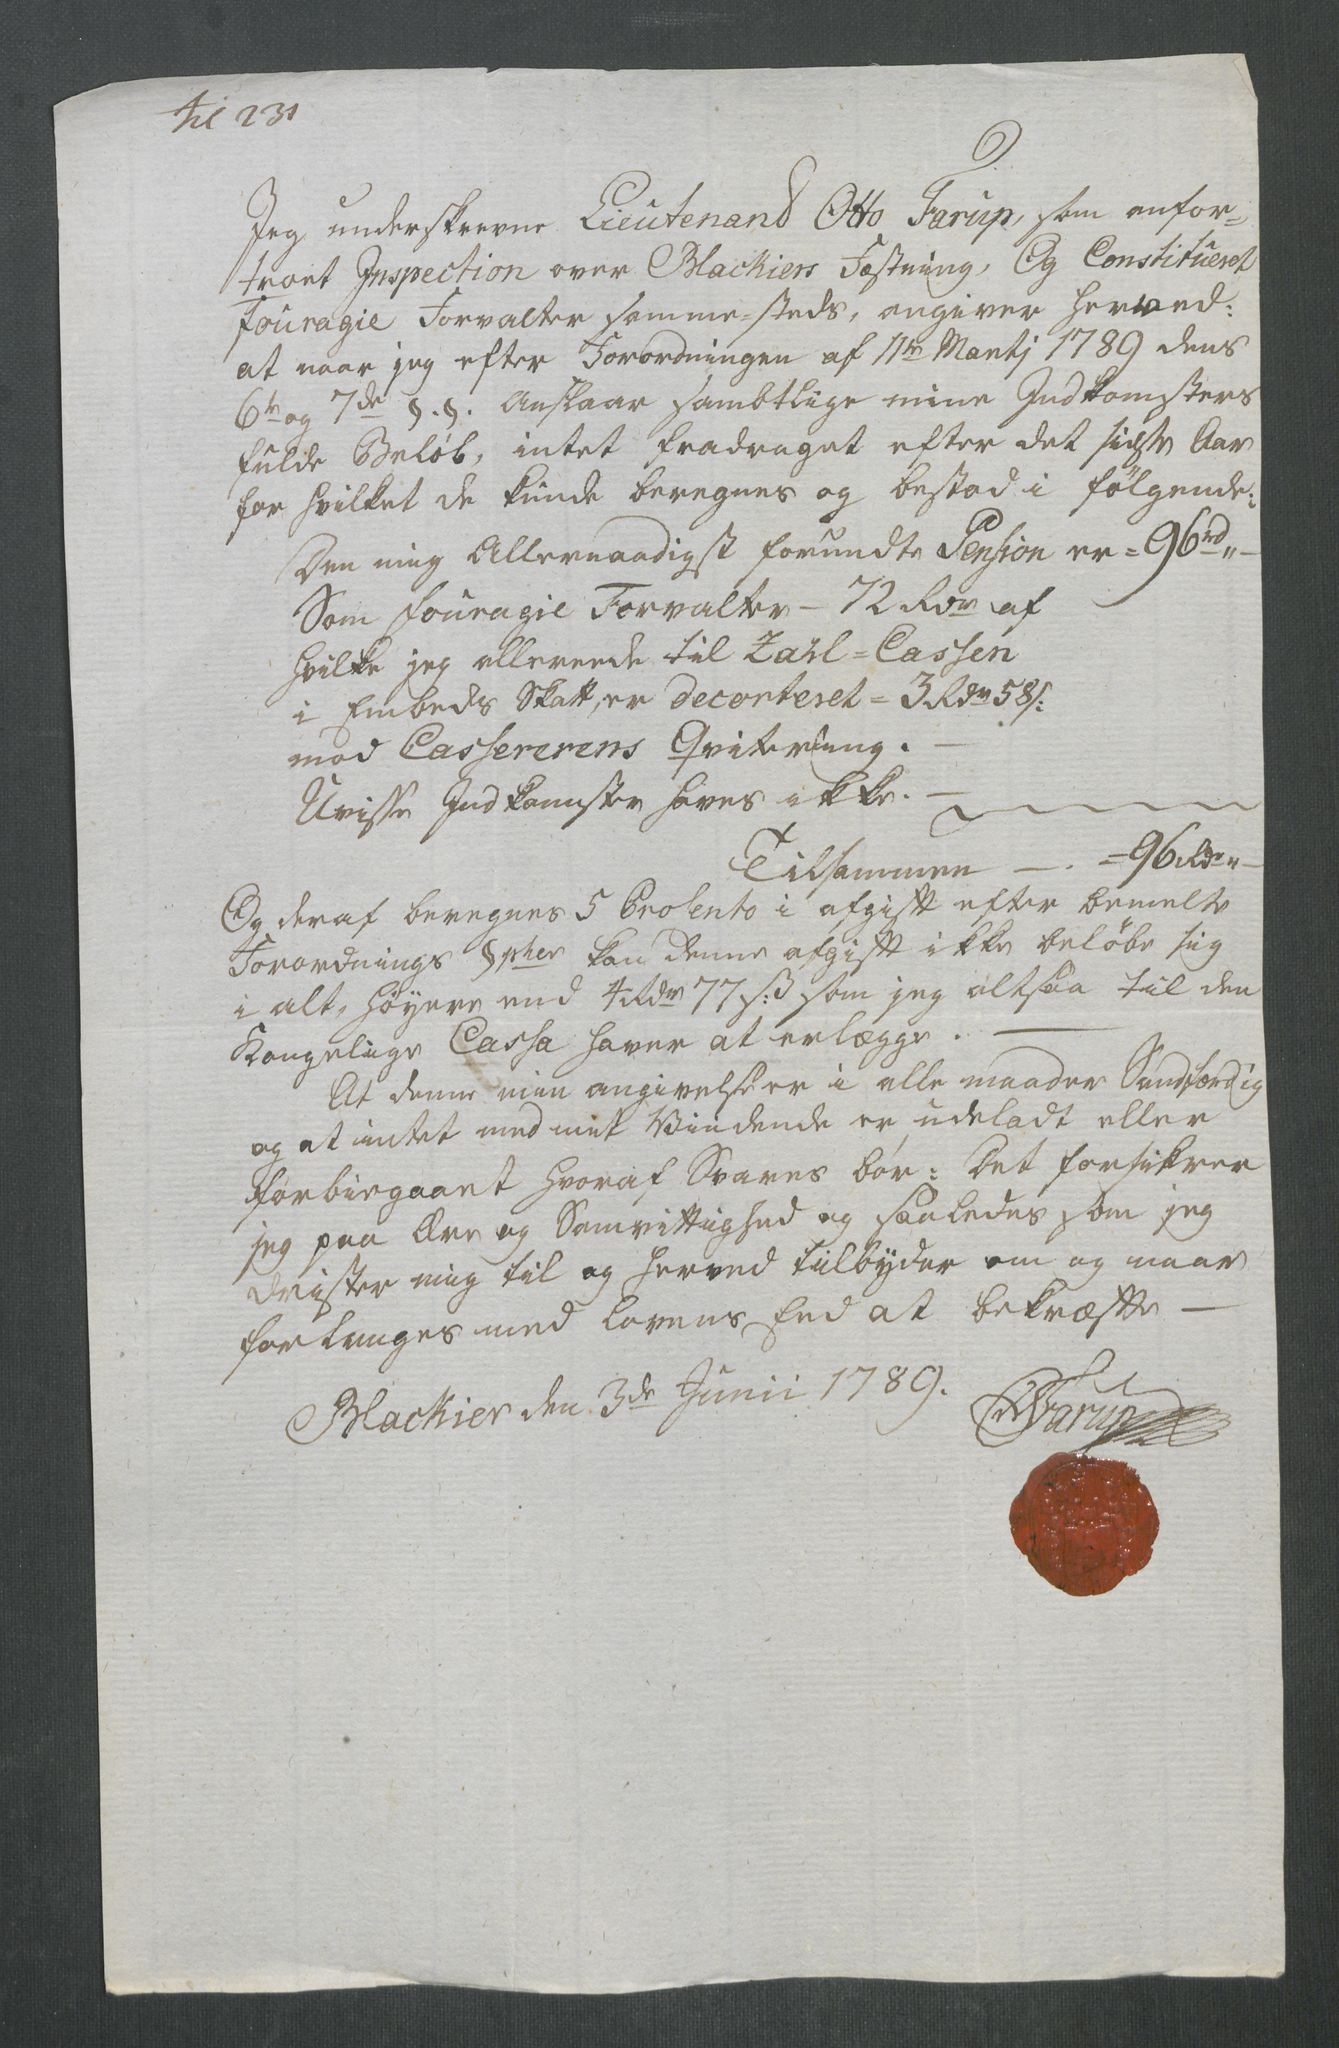 til 231
Jeg underskrevne Lieutenand Otto Farup, som anfor-
troet Inspection over Blackiers Fæstning, Og Constitueret
fouragie Forvalter samme-steds, angiver herved:
at naar jeg efter Forordningen af 11te Martj 1789 dens
6te og 7de §.§. Anslaar sambtlige mine Indkomsters
fulde Beløb, intet fradraget efter det sidste Aar
for hvilket de kunde beregnes og bestod i følgende:
Den mig Allernaadigst forundte Pension er = 96rd „ —
Som fouragie Forvalter — 72 Rdr af
hvilke jeg allereede til Zahl-Cassen
i Embeds Skatt, er decorteret = 3 Rdr 58 s:
mod Cassererens Qvitering. —
Uvisse Indkomster haves ikke. —
Tilsammen — . = 96 Rdr „ —
Og deraf beregnes 5 Procento i afgift efter bemelte
Forordnings §pher kan denne afgift ikke beløbe sig
i alt, høyere end 4 Rdr 77 s:ß som jeg altsaa til den
Kongelige Cassa haver at erlægge. —
At denne min angivelse er i alle maader Sandfærdig
og at intet med mit Vidende er udeladt eller
forbiegaaet hvoraf Svares bør: Det forsikrer
jeg paa Ære og Samvittighed og saaledes som jeg
drister mig til og herved tilbyder om og naar
forlanges med lovens Eed at bekræfte —
Blackier den 3de Junii 1789.
OFarup